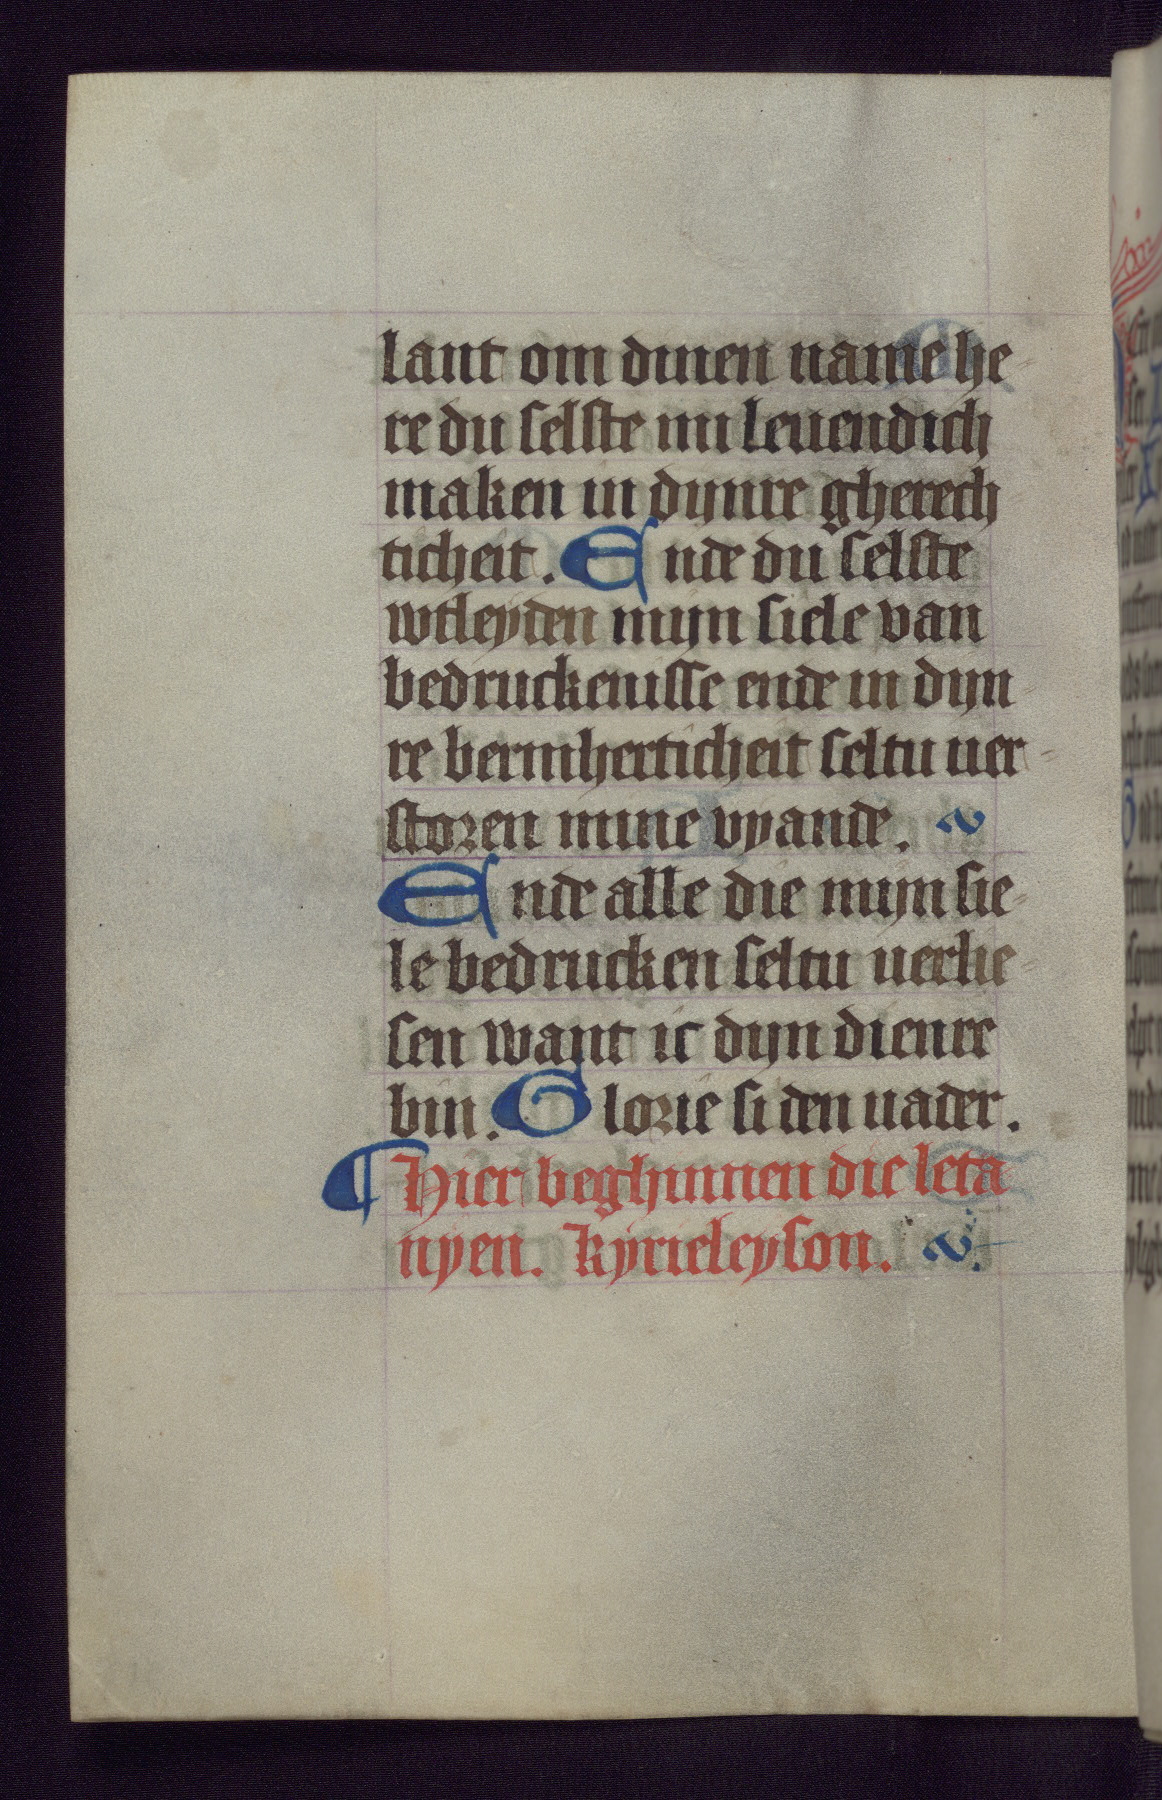 lant om dinen name he
re du selste mi leuendich
maken in dynre gherech
ticheit. Ende du selste
wtleyden mijn siele van
bedruckenisse ende in dyn
re bermherticheit seltu uer
storen mine vyande.
Ende alle die mijn sie
le bedrucken seltu uerlie
sen want ic dyn dienre
bin. Glorie si den uader.
¶ Hier beghinnen die leta
nyen. Kyrieleyson.